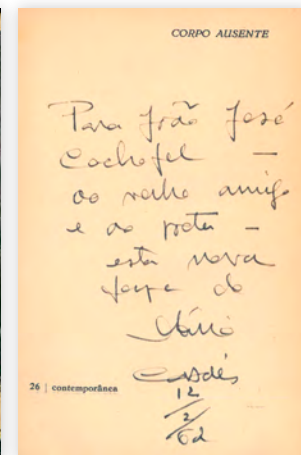 CORPO AUSENTE
Para João José
Cochofel —
ao velho amigo
e ao poeta —
esta nova
do
Mário
26 | contemporânea
12
2
62